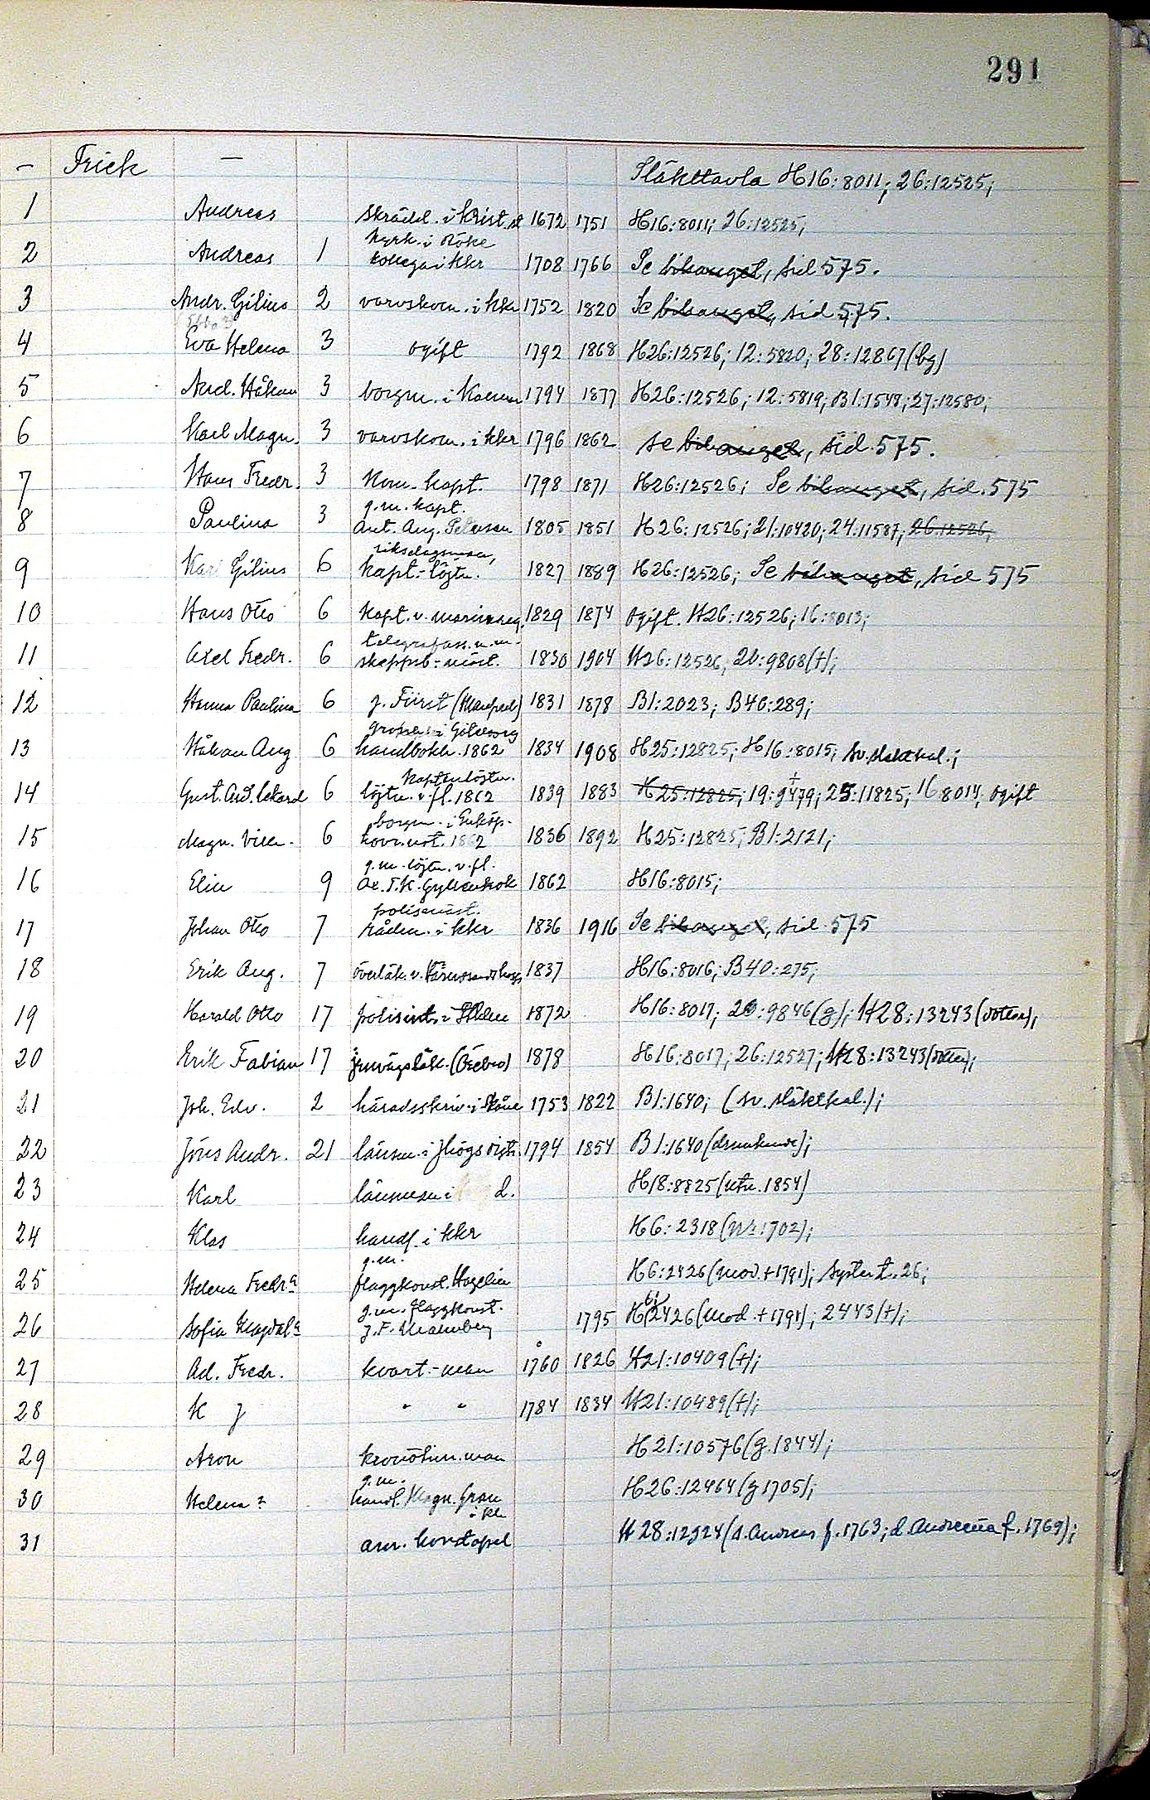 291
– Frick – Släkttavla H16:8011; 26:12525;
1 Andreas skrädd. i Krist.st 1672 1751 H16:8011; 26:12525;
kyrk. i Röke
2 Andreas 1 kollega i kkr 1708 1766 Se bihanget, sid 575.
3 Andr. Gilius 2 varvskom. i kkr 1752 1820 Se bihanget, sid 575.
4 Eva Helena 3 ogift 1792 1868 H26:12526; 12:5820; 28:12867 (bg)
5 And. Håkan 3 borgm. i 1794 1877 H26:12526; 12:5819; B1:1548; 27:12580;
6 Karl Magn. 3 varvskom. i kkr 1796 1862 se bihanget, sid. 575.
7 Hans Fredr. 3 kom. kapt. 1798 1871 H26:12526; Se bihanget, sid. 575
g.m. kapt.
8 Paulina 3 Ant. Aug. Peterson 1805 1851 H26:12526; 21:10420; 24:11587, 26:12526,
riksdagsman,
9 Karl Gilius 6 kapt.-löjtn. 1827 1889 H26:12526; Se bihanget, sid 575
10 Hans Otto 6 kapt. v. marinreg. 1829 1874 Ogift. H26:12526; 16:8013;
telegrafass. m.m.
11 Axel Fredr. 6 skeppsb.-mäst. 1830 1904 H26:12526, 20:9808(+);
12 Hanna Paulina 6 g. Fürst (Manfred) 1831 1878 B1:2023; B40:289;
grossh. i Göteborg
13 Håkan Aug 6 handbokh. 1862 1834 1908 H25:12825; H16:8015; Sv. släktkal.;
Kaptenlöjtn.
14 Gust. And. Eckard 6 löjtn. v. fl. 1862 1839 1883 H25:12825; 19:9479; 25:11825, 16 8014, ogift
borgm. i Enköp.
15 Magn. Vilh. 6 hovr.not. 1862 1836 1892 H25:12825, B1:2121;
g.m. löjtn. v. fl.
16 Elin 9 Ax. T. K. Gyllenkrok 1862 H16:8015;
polismäst.
17 Johan Otto 7 rådm. i kkr 1836 1916 Se bihanget, sid. 575
18 Erik Aug. 7 överläk. v. 1837 H16:8016; B40:275;
19 Harald Otto 17 polisint. i 1872 H16:8017; 20:9846 (g); H28:13243 (dotter);
20 Erik Fabian 17 järnvägsläk. (Örebro) 1878 H16:8017; 26:12527; H28:13243 (dotter);
21 Joh. Edv. 2 häradsskriv. i Skåne 1753 1822 B1:1640; (sv. släktkal.);
22 Jöns Andr. 21 länsm. i 1794 1854 B1:1640 (drunknade);
23 Karl länsman i d. H18:8825 (utn. 1854)
24 Klas handl. i kkr H6:2318 (nr:1702);
g.m.
25 Helena Fredr:a flaggkonst. Hagelin H6:2426 (mod. +1791); syster t. 26;
g.m. flaggkonst.
26 Sofia Magdal:a J. F. 1795 H6:2426 (mod. +1791); 2443(+);
27 Ad. Fredr. kvart.-man 1760 1826 H21:10409(+);
28 K J " " 1784 1834 H21:10489(+);
29 Aron kronotim.man H21:10576 (g.1844);
g.m.
30 Helena handl. Magn. Gran H26:12464 (g 1705);
i kkr
31 H28:12924 (s. Andreas f. 1763; d. Andreetta f. 1769);